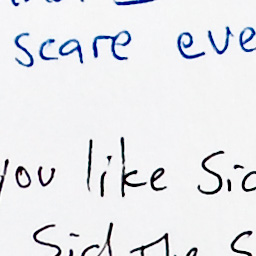 scare eve
you like Sid
Sid the S